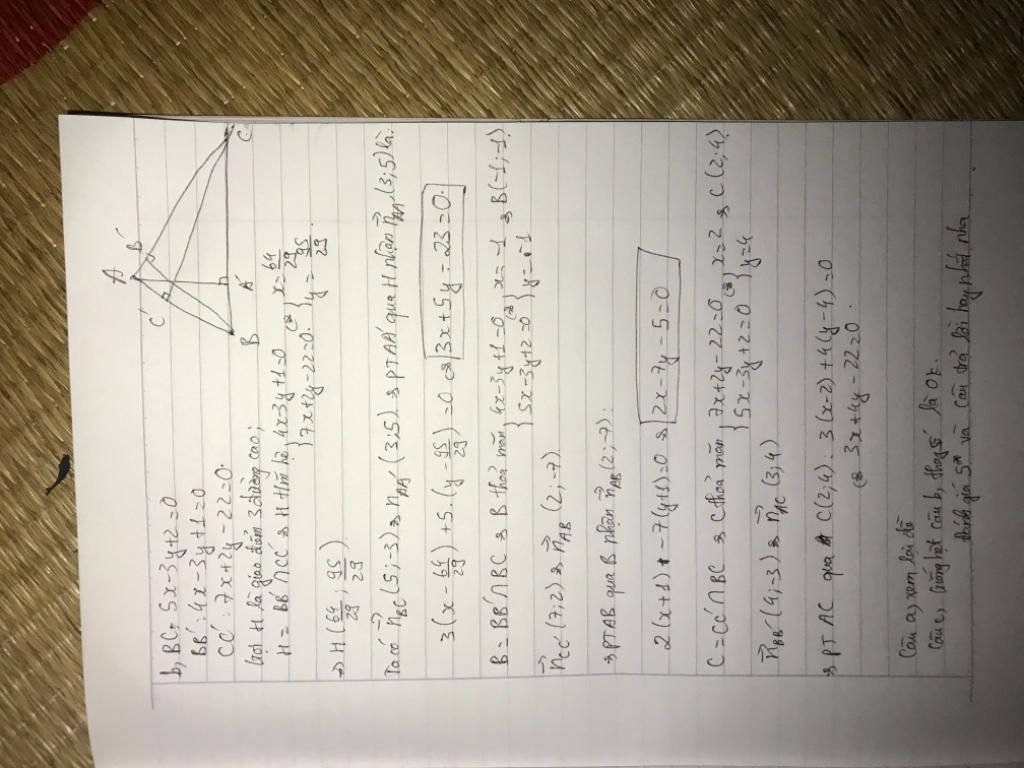 A
B'
C'
B
A'
C
b, BC: 5x-3y+2=0
BB': 4x-3y+1=0
CC': 7x+2y-22=0.
Gọi H là giao điểm 3 đường cao;
H = BB'∩CC' => H t/m hệ { 4x-3y+1=0
7x+2y-22=0. (=) { x = 64/29
y = 95/29.
=> H(64/29; 95/29)
Ta có n⃗BC(5;-3) => n⃗AA'(3;5) => PTAA' qua H nhận n⃗AA'(3;5) là:
3(x-64/29)+5.(y-95/29)=0 (=) 3x+5y-23=0.
B = BB'∩BC => B thỏa mãn { 4x-3y+1=0
5x-3y+2=0 (=) { x=-1
y=-1 => B(-1;-1)
n⃗CC'(7;2) => n⃗AB(2,-7).
=> PTAB qua B nhận n⃗AB(2;-7):
2(x+1)+-7(y+1)=0 (=) 2x-7y-5=0
C = CC'∩BC => C thỏa mãn { 7x+2y-22=0
5x-3y+2=0 (=) { x=2
y=4 => C(2;4)
n⃗BB'(4;-3) => n⃗AC(3,4)
=> PT AC qua C(2,4): 3(x-2)+4(y-4)=0
(=) 3x+4y-22=0.
Câu a, xem lại đề
Câu c, Giống hệt câu b, thay số là OK.
đánh giá 5* và câu trả lời hay nhất nha